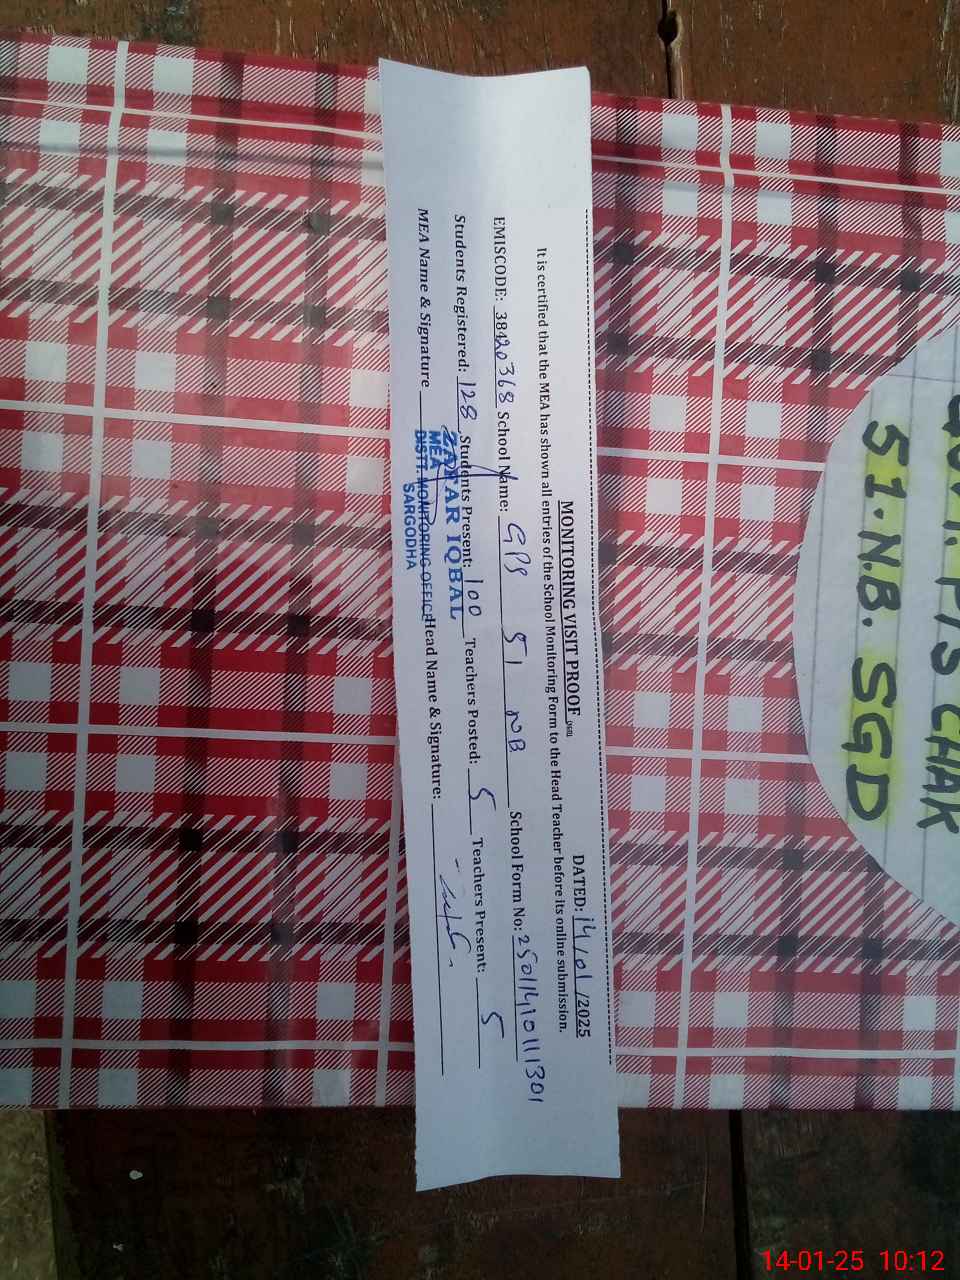 MONITORING VISIT PROOF
DATED: 14/01/2025
It is certified that the MEA has shown all entries of the School Monitoring Form to the Head Teacher before its online submission.
EMISCODE: 38420368 School Name: GPS 51 NB School Form No: 2501141011301
Students Registered: 128 Students Present: 100 Teachers Posted: 5 Teachers Present: 5
MEA Name & Signature Head Name & Signature:
ZAFAR IQBAL
MEA
DISTT. MONITORING OFFICE
SARGODHA
P/S CHAK
51.N.B. SGD
14-01-25 10:12